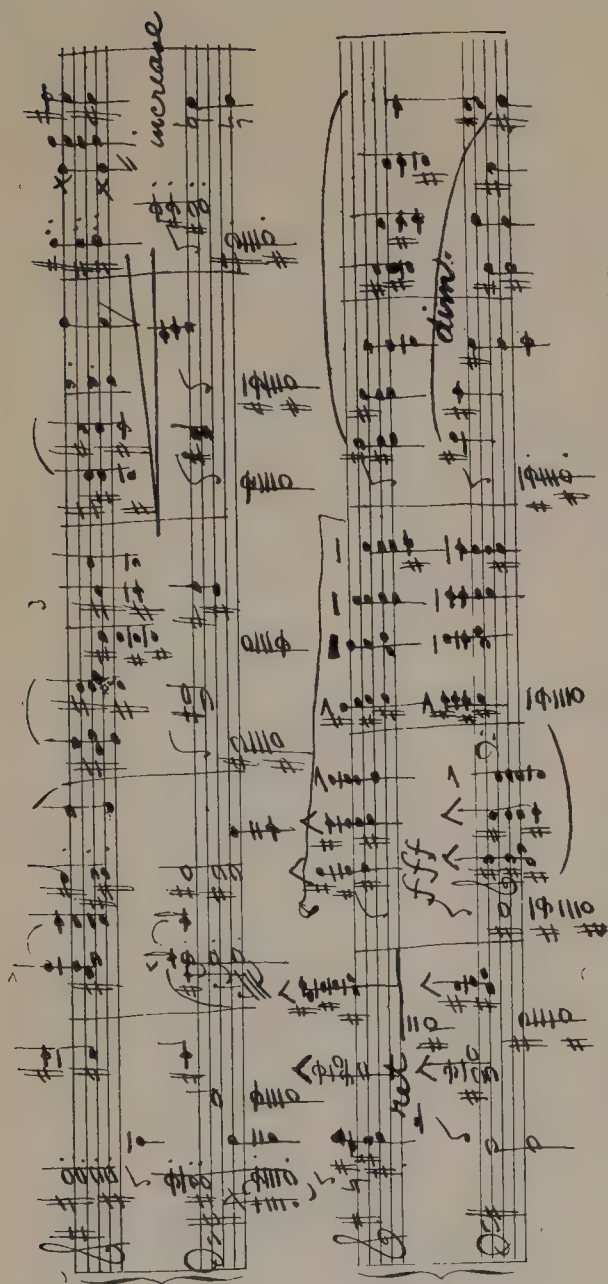 increase
rit
fff
dim.